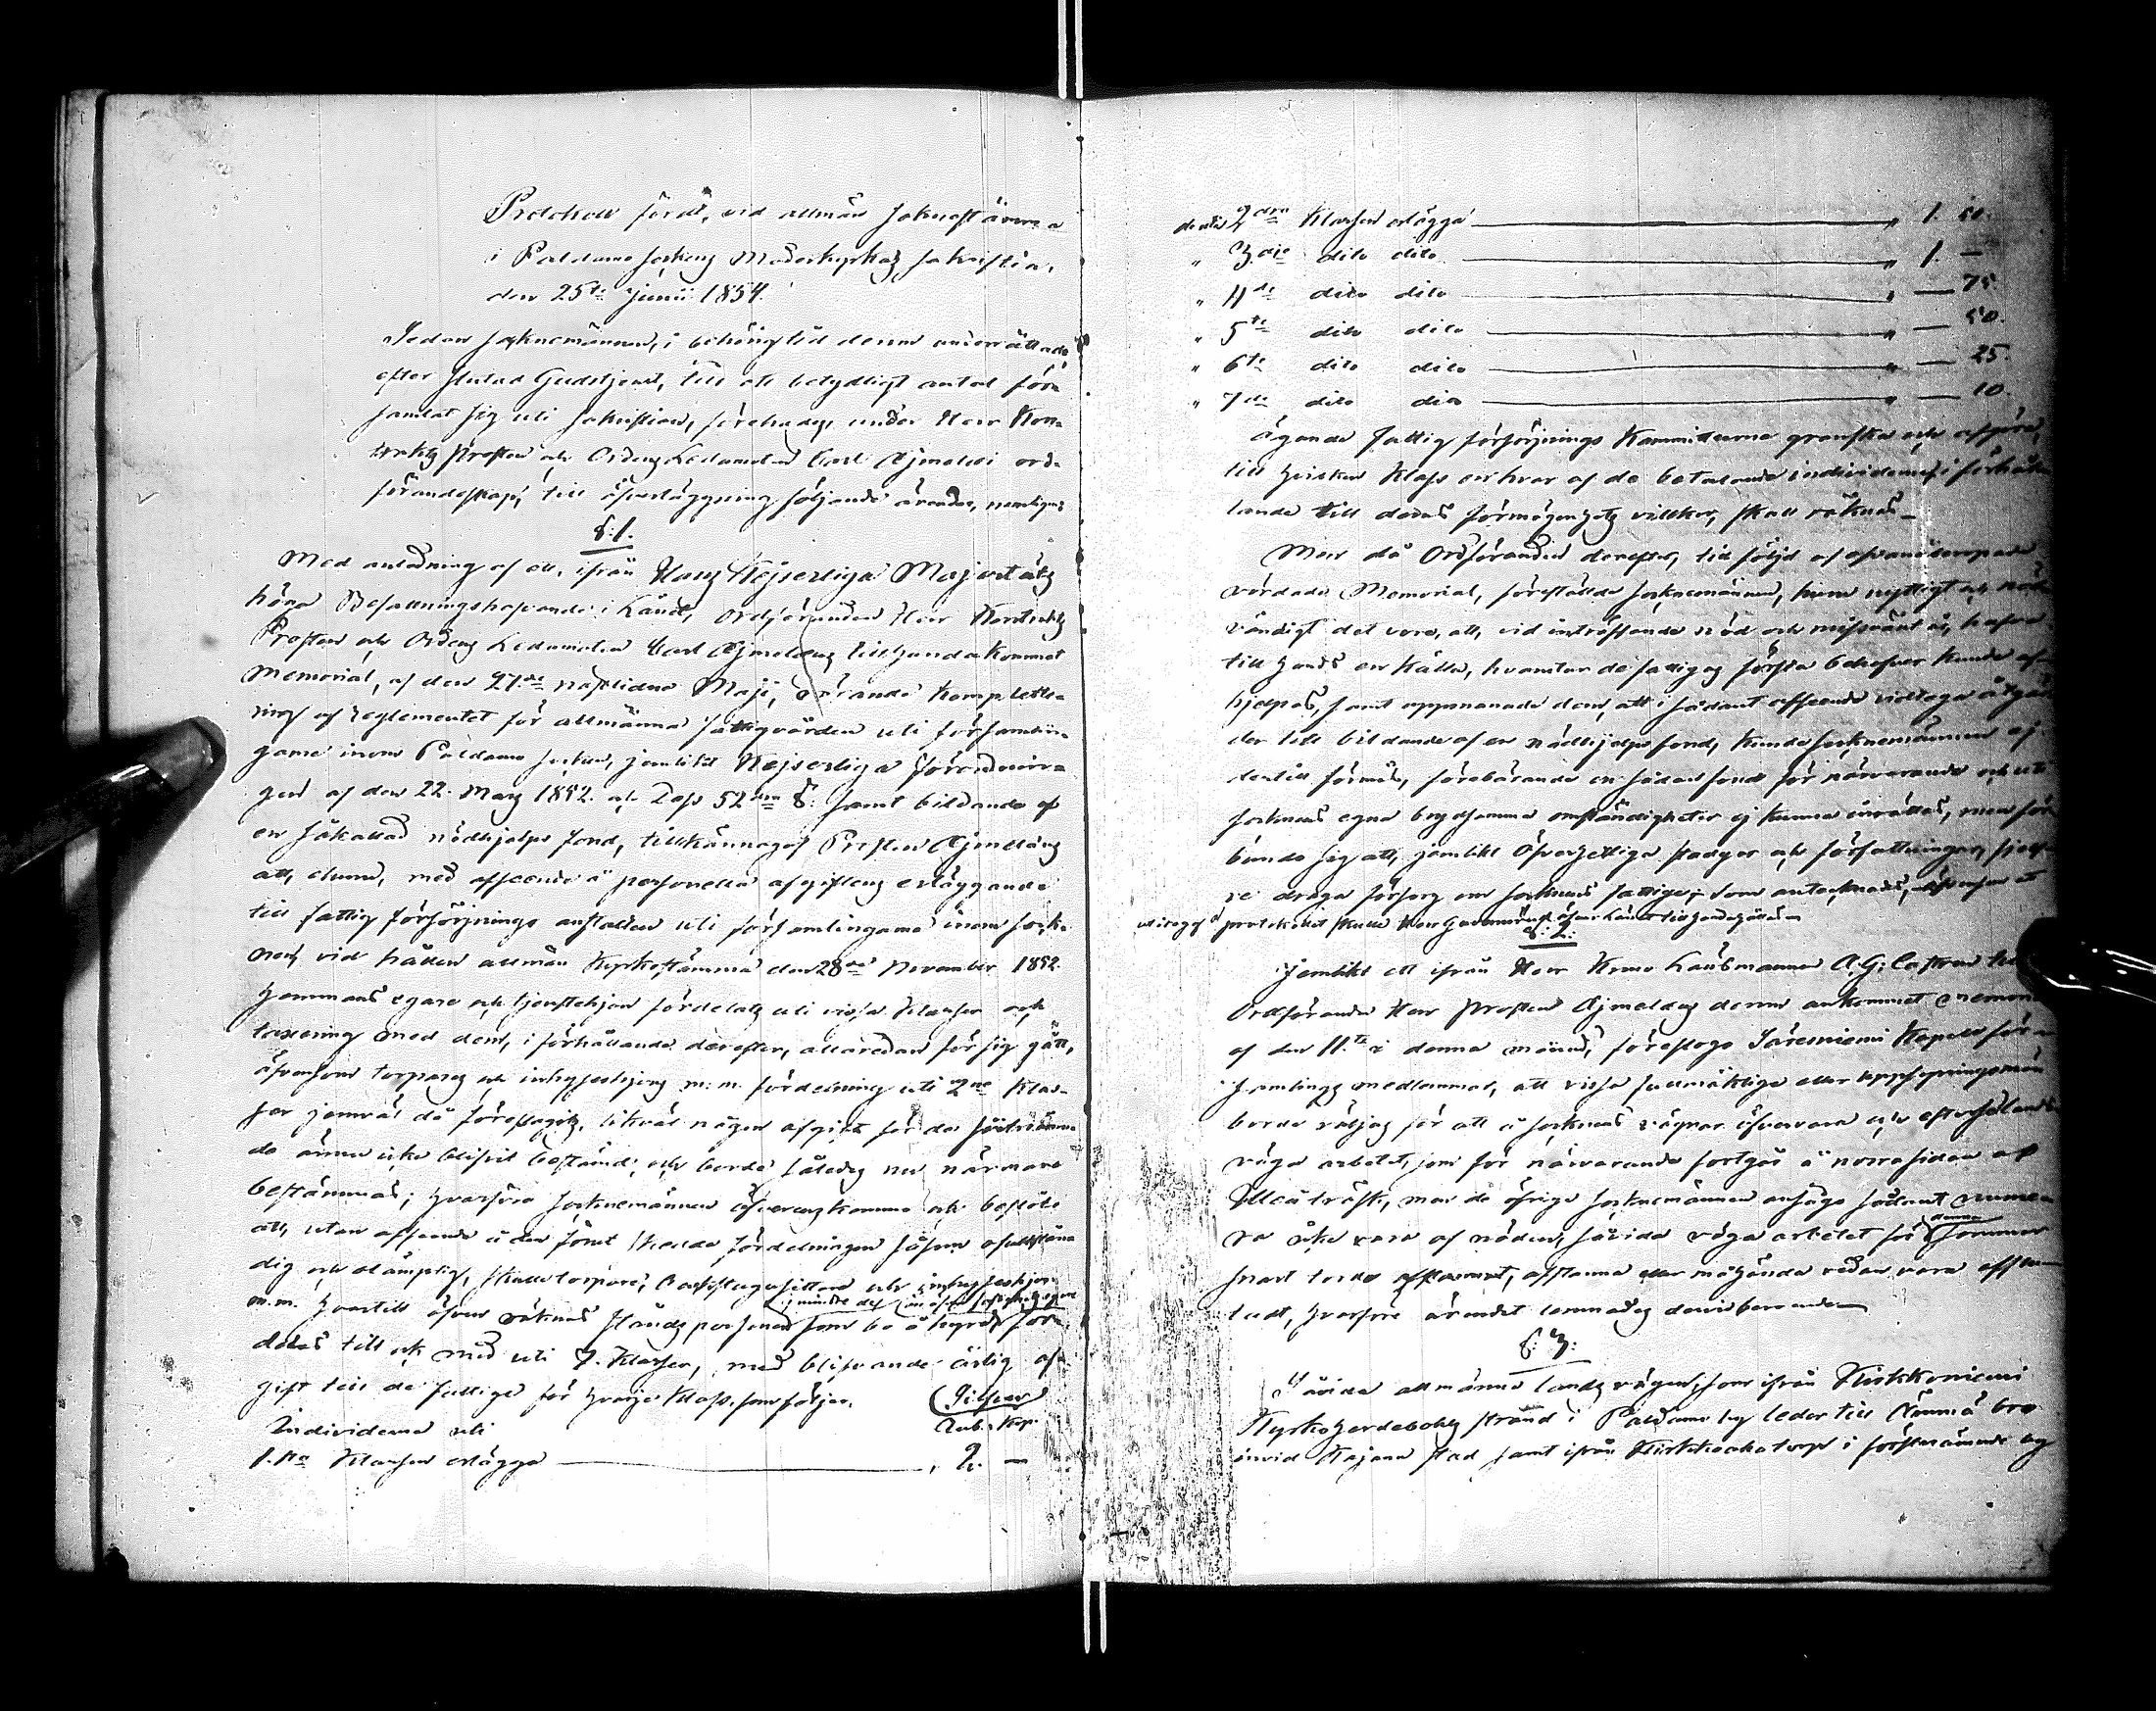 Protokoll fördt, vid allmän Sokneftämma
i Paldamo Sockens Moderkyrkas Sakristia,
den 25te Junii 1854.
Sedan Socknemännen, i behörig tid derom underrättade,
efter slutad Gudstjenst, till ett betydligt antal för-
samlat sig uti Sakristian, företogs, under Herr Kon-
trakts Prosten och Ordens Ledamoten Carl Ajmelæi ord-
förandeskap, till öfverläggning följande ärender, nemligen
§:1.
Med anledning af ett, ifrån Hans Kejserliga Majestäts
höga Befallningshafvande i Länet, Ordföranden Herr Kontrakts
Prosten och Ordens Ledamoten Carl Ajmelæus tillhandakommet
Memorial, af den 27de nästlidne Maji, rörande komplette-
ring af reglementet för allmänna fattigvården uti församlin-
garne inom Paldamo Socken, jemlikt Kejserliga förordnin-
gen af den 22. Mars 1852. och Dess 52dra §: samt bildande af
en så kallad nödhjelps fond, tillkännagaf Prosten Ajmelæus
att, ehuru, med afseende å personella afgiftens erläggande
till fattig försörjnings anstalten uti församlingarne inom Sock-
nen, vid hållen allmän Kyrkostämma den 28de November 1852.
hemmans egare och tjenstehjon fördelats uti vissa klasser och
taxering med dem, i förhållande derefter, allaredan för sig gått,
äfvensom torpares och inhyseshjons m:m. fördelning uti 2ne klas-
ser jemväl då föreslagits, likväl någon afgift för de sistnämn-
de ännu icke blifvit bestämd; och borde således nu närmare
bestämmas; hvarföre Socknemännen öfverenskommo och beslöto
att, utan afseende å den förut skedda fördelningen såsom ofullstän-
dig och olämplig, skulle torpare, Backstugusittare och inhyseshjon
m.m. hvartill äfven räknas Stånds personer som bo å hyror, för-
delas till och med uti 7. klasser, med blifvande årlig af-
gift till de fattige för hvarje klass, som följer.
Silfver
Individerne uti Rub. Kop.
1.sta Klassen erlägga " 2. —
de uti 2dra Klassen erlägga " 1. 50.
" 3die dito dito " 1. —
" 4de dito dito " — 75.
" 5te dito dito " — 50.
" 6te dito dito " — 25.
" 7de dito dito " — 10.
ägande fattig försörjnings Kommitteerne granska och afgöra,
till hvilken klass en hvar af de betalande individerne, i förhål-
lande till deras förmögenhets villkor, skall räknas.
Men då Ordföranden derefter, till följd af ofvanåberopade
vördade Memorial, föreställde Socknemännen, huru nyttigt och nöd-
vändigt det vore, att, vid inträffande nöd och missväxt år, hafva
till hands en källa, hvarutur de fattigas första behofver kunde af-
hjelpas, samt uppmanade dem, att i sådant afseende vidtaga åtgär-
der till bildande af en nödhjelps fond, kunde Socknemännen ej
dertill förmås, förebärande en sådan fond för närvarande och uti
Socknens egna brydsamma omständigheter ej kunna inrättas, men för-
bundo sig att, jemlikt öfverhetliga stadgar och författningar, sjelf-
ve draga försorg om Socknens fattige; som antecknades,
utdraget af protokollet skulle Herr Guvernören öfver Länet tillhandagå
§:2:
Jemlikt ett ifrån Herr Krono Länsmannen A.G: Castren till
Ordföranden Herr Prosten Ajmelæus derom ankommet memorial
af den 11.te i denna månad, föreslogo Säresniemi Kapells för-
samlings medlemmar, att vissa fullmäktige eller uppsyningsmän
borde väljas för att å Socknens vägnar öfvervara och efterse
väga arbetet, som för närvarande fortgår å norra sidan af
Uleå träsk, men de öfrige Socknemännen ansågo sådant numera
icke vara af nöden, såvida väga arbetet för denna sommar
snart torde afstanna eller möjligen redan vore afslu-
tadt, hvarföre ärendet lemnades dervid beroende.
§:3:
Såvida allmänna landsvägen, som ifrån Kirkkoniemi
Kyrkoherdebohls strand i Paldamo by leder till Ämmä bro
invid Kajana stad samt ifrån Kirkkoaho torp i förstnämnde by